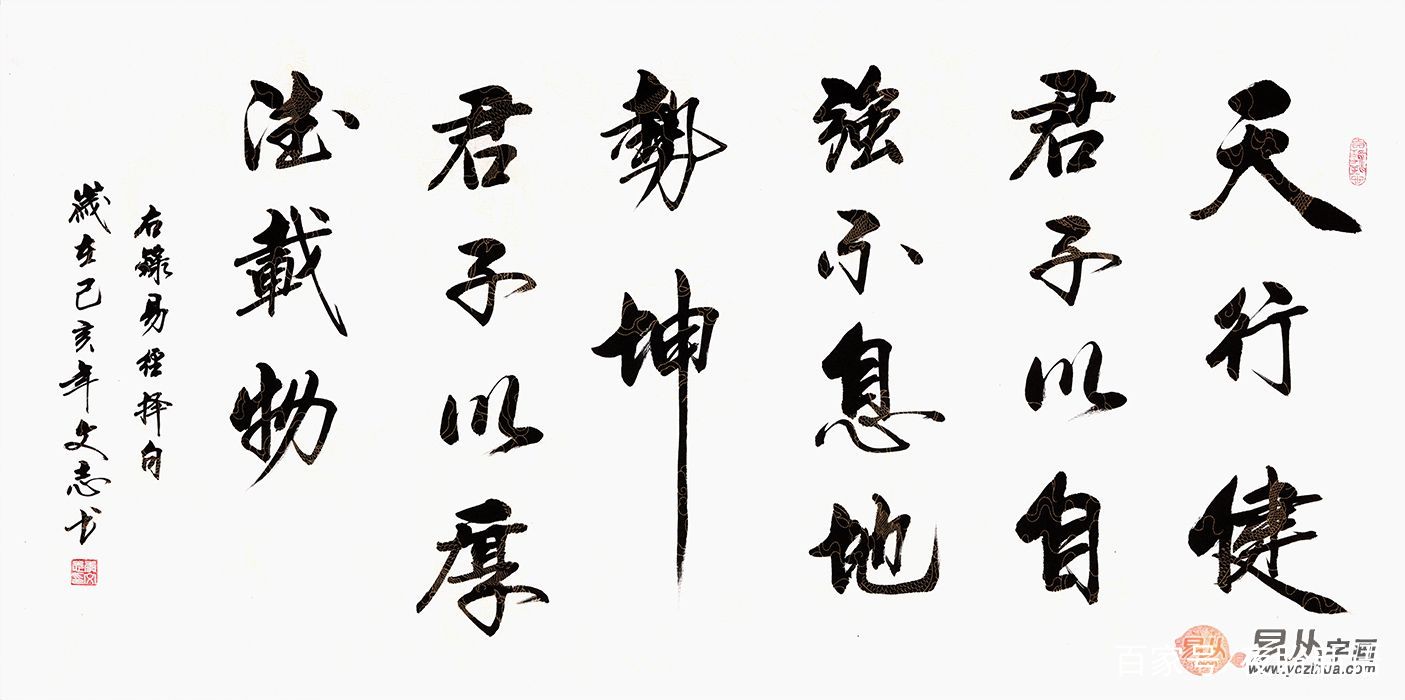 天行健
君子以自
強不息地
勢坤
君子以厚
德載物
右錄易經择句
歲在己亥年文志书
易从字画
www.yczihua.com
百家号